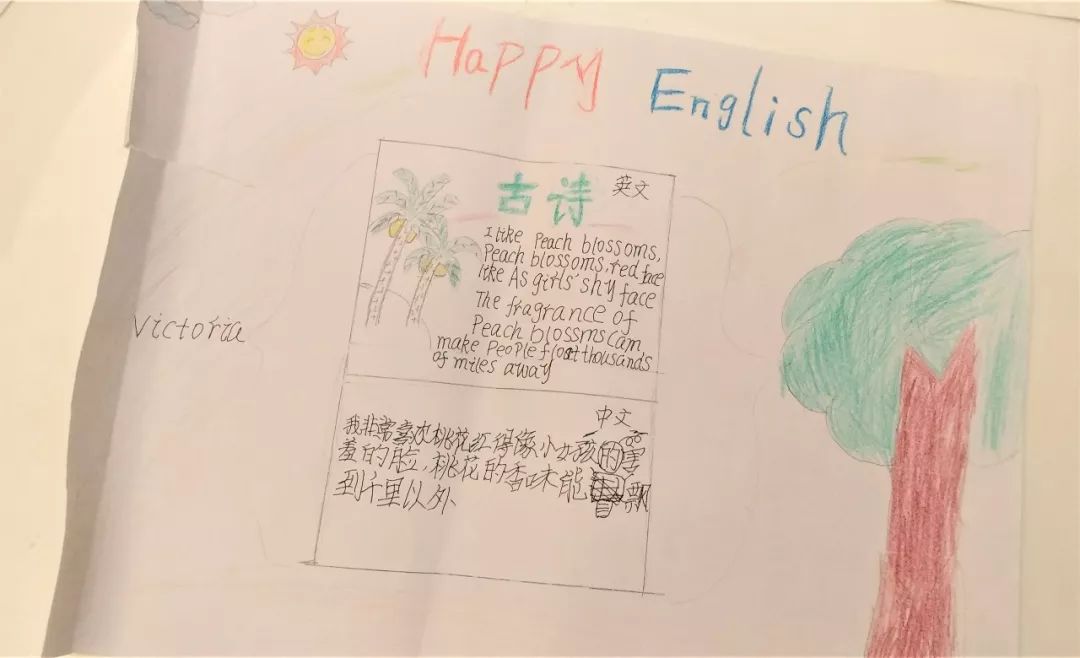 Happy English
古诗 英文
I like Peach blossoms,
Peach blossoms, red face
like As girls' shy face
The fragrance of
Peach blossms can
make People float thousands
of miles away
Victoria
中文
我非常喜欢桃花红得像小女孩的害
羞的脸,桃花的香味能飘
到千里以外